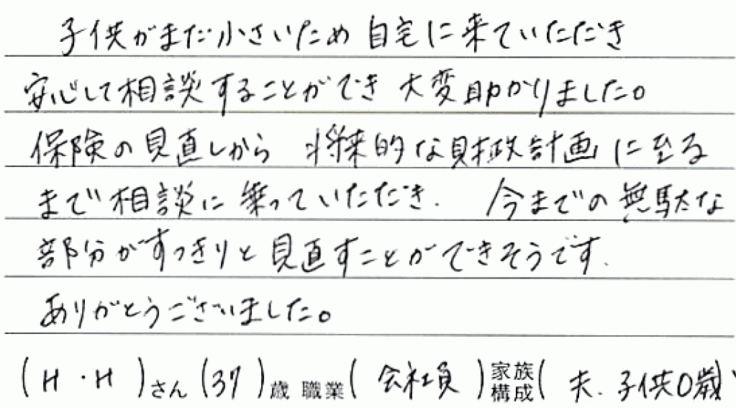 子供がまだ小さいため 自宅に来ていただき
安心して相談することができ 大変助かりました。
保険の見直しから 将来的な財政計画に至る
まで相談に乗っていただき. 今までの無駄な
部分がすっきりと見直すことができそうです.
ありがとうございました。
(H・H)さん(37)歳 職業(会社員)家族構成(夫. 子供0歳)